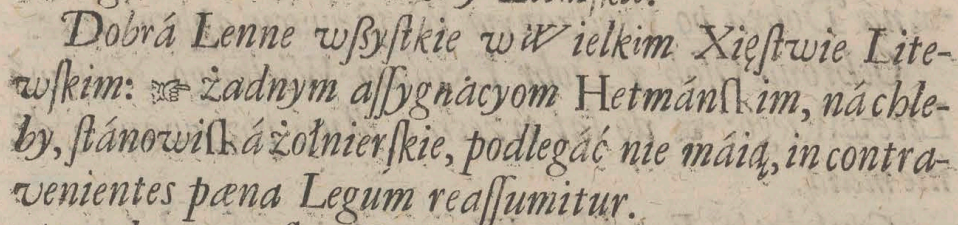 Dobrá Lenne wſzyſtkie w Wielkim Xięſtwie Lite-
wſkim: ☞ żadnym aſſygnácyom Hetmánſkim, ná chle-
by, ſtánowiſká żołnierſkie, podlegáć nie máią, in contra-
venientes pæna Legum reaſſumitur.